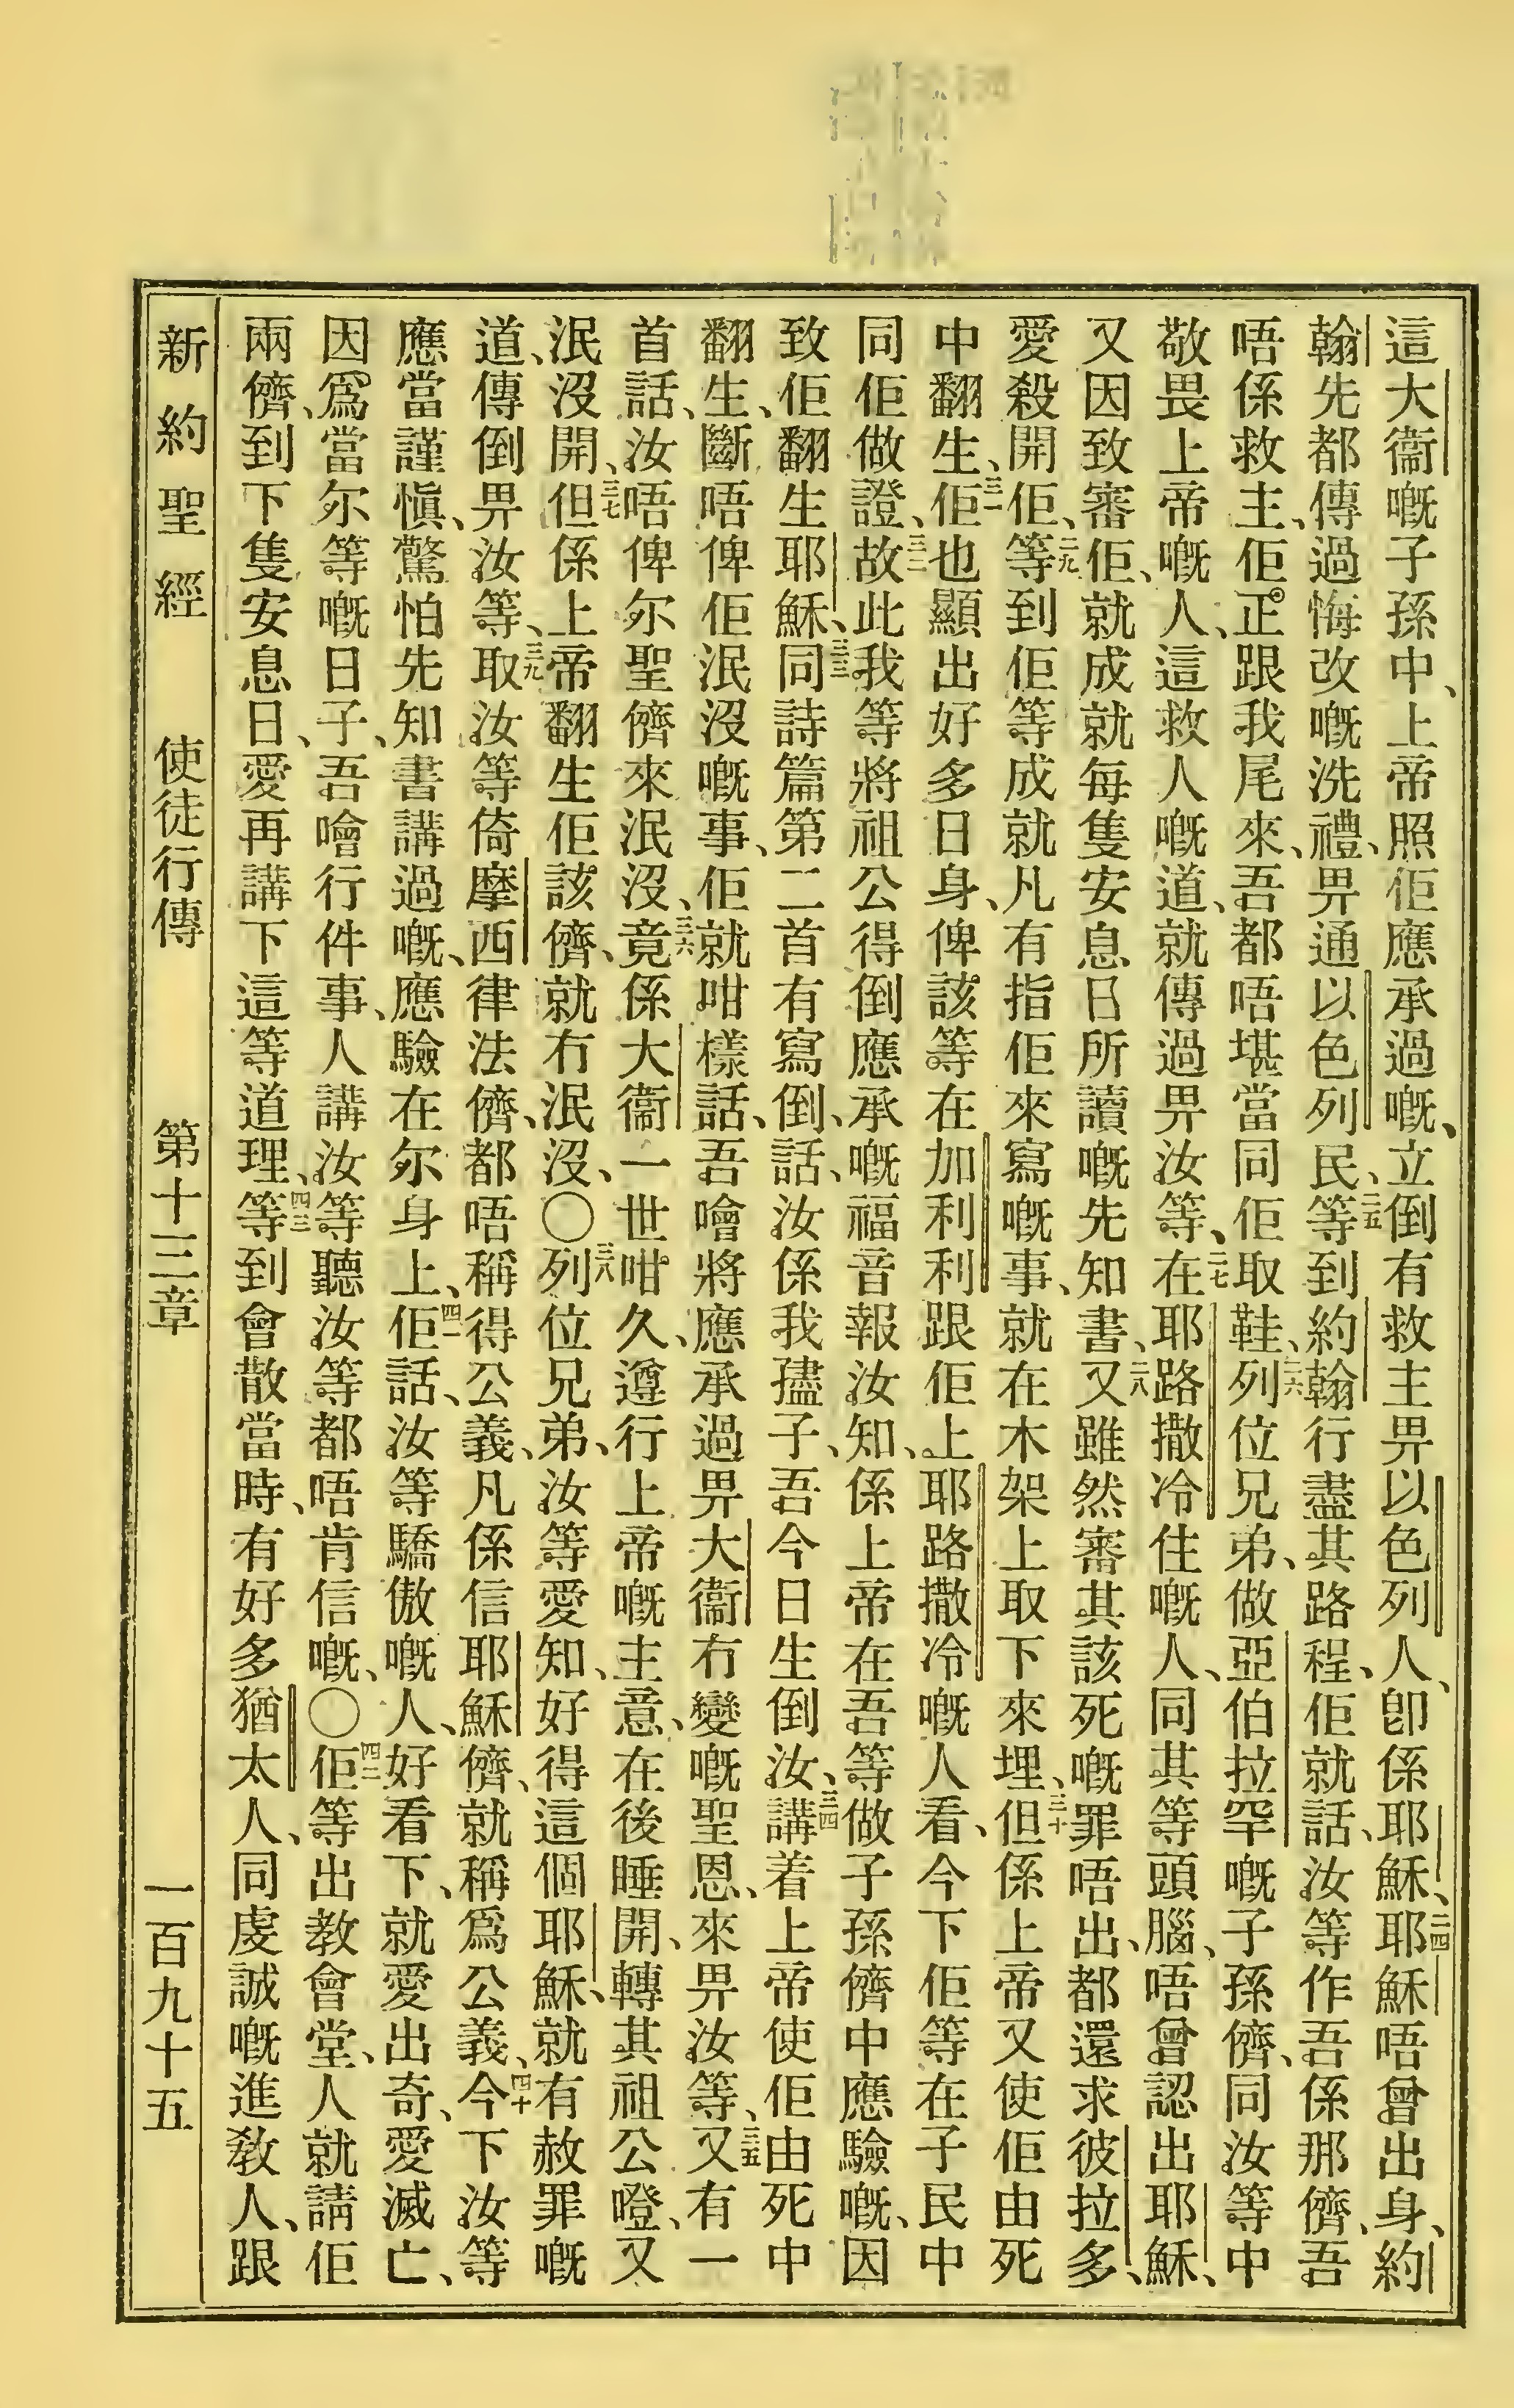 這大衞嘅子孫中、上帝照佢應承過嘅、立倒有救主畀以色列人、卽係耶穌、二四耶穌唔曾出身、約
翰先都傳過悔改嘅洗禮、畀通以色列民、二五等到約翰行盡其路程、佢就話、汝等作吾係那儕、吾
唔係救主、佢正跟我尾來、吾都唔堪當同佢取鞋、二六列位兄弟、做亞伯拉罕嘅子孫儕、同汝等中
敬畏上帝嘅人、這救人嘅道、就傳過畀汝等、二七在耶路撒冷住嘅人、同其等頭腦、唔曾認出耶穌、
又因致審佢、就成就每隻安息日所讀嘅先知書、二八又雖然審其該死嘅罪唔出、都還求彼拉多、
愛殺開佢、二九等到佢等成就凡有指佢來寫嘅事、就在木架上取下來埋、三十但係上帝又使佢由死
中翻生、三一佢也顯出好多日身、俾該等在加利利跟佢上耶路撒冷嘅人看、今下佢等在子民中
同佢做證、三二故此我等將祖公得倒應承嘅福音報汝知、係上帝在吾等做子孫儕中應驗嘅、因
致佢翻生耶穌、三三同詩篇第二首有寫倒、話、汝係我孻子、吾今日生倒汝、三四講着上帝使佢由死中
翻生、斷唔俾佢泯沒嘅事、佢就咁樣話、吾噲將應承過畀大衞冇變嘅聖恩、來畀汝等、三五又有一
首話、汝唔俾尔聖儕來泯沒、三六竟係大衞一世咁久、遵行上帝嘅主意、在後睡開、轉其祖公嶝、又
泯沒開、三七但係上帝翻生佢該儕、就冇泯沒、〇三八列位兄弟、汝等愛知、好得這個耶穌、就有赦罪嘅
道、傳倒畀汝等、三九取汝等倚摩西律法儕、都唔稱得公義、凡係信耶穌儕、就稱爲公義、四十今下汝等
應當謹愼、驚怕先知書講過嘅、應驗在尔身上、四一佢話、汝等驕傲嘅人、好看下、就愛出奇、愛滅亡、
因爲當尔等嘅日子、吾噲行件事、人講汝等聽、汝等都唔肯信嘅、〇四二佢等出教會堂、人就請佢
兩儕、到下隻安息日、愛再講下這等道理、四三等到會散當時、有好多猶太人、同虔誠嘅進教人、跟
新約聖經 使徒行傳 第十三章 一百九十五